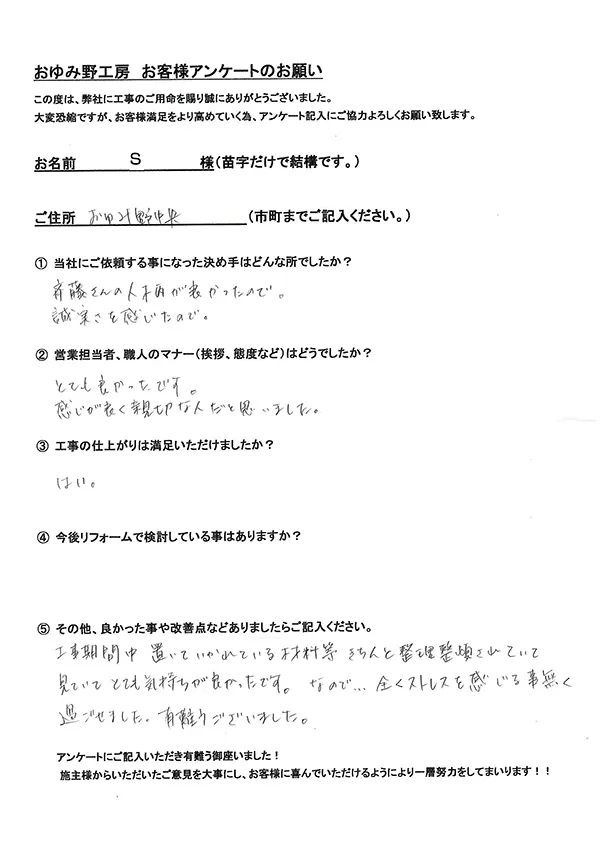 おゆみ野工房 お客様アンケートのお願い
この度は、弊社に工事のご用命を賜り誠にありがとうございました。
大変恐縮ですが、お客様満足をより高めていく為、アンケート記入にご協力よろしくお願い致します。
お名前 S 様(苗字だけで結構です。)
ご住所 おゆみ野中央 (市町までご記入ください。)
① 当社にご依頼する事になった決め手はどんな所でしたか？
斉藤さんの人柄が良かったので。
誠実さを感じたので。
② 営業担当者、職人のマナー(挨拶、態度など)はどうでしたか？
とても良かったです。
感じが良く親切な人だと思いました。
③ 工事の仕上がりは満足いただけましたか？
はい。
④ 今後リフォームで検討している事はありますか？
⑤ その他、良かった事や改善点などありましたらご記入ください。
工事期間中 置いていかれている材料等 きちんと整理整頓されていて
見ていて とても気持ちが良かったです。 なので… 全くストレスを感じる事無く
過ごせました。有難うございました。
アンケートにご記入いただき有難う御座いました！
施主様からいただいたご意見を大事にし、お客様に喜んでいただけるようにより一層努力をしてまいります！！